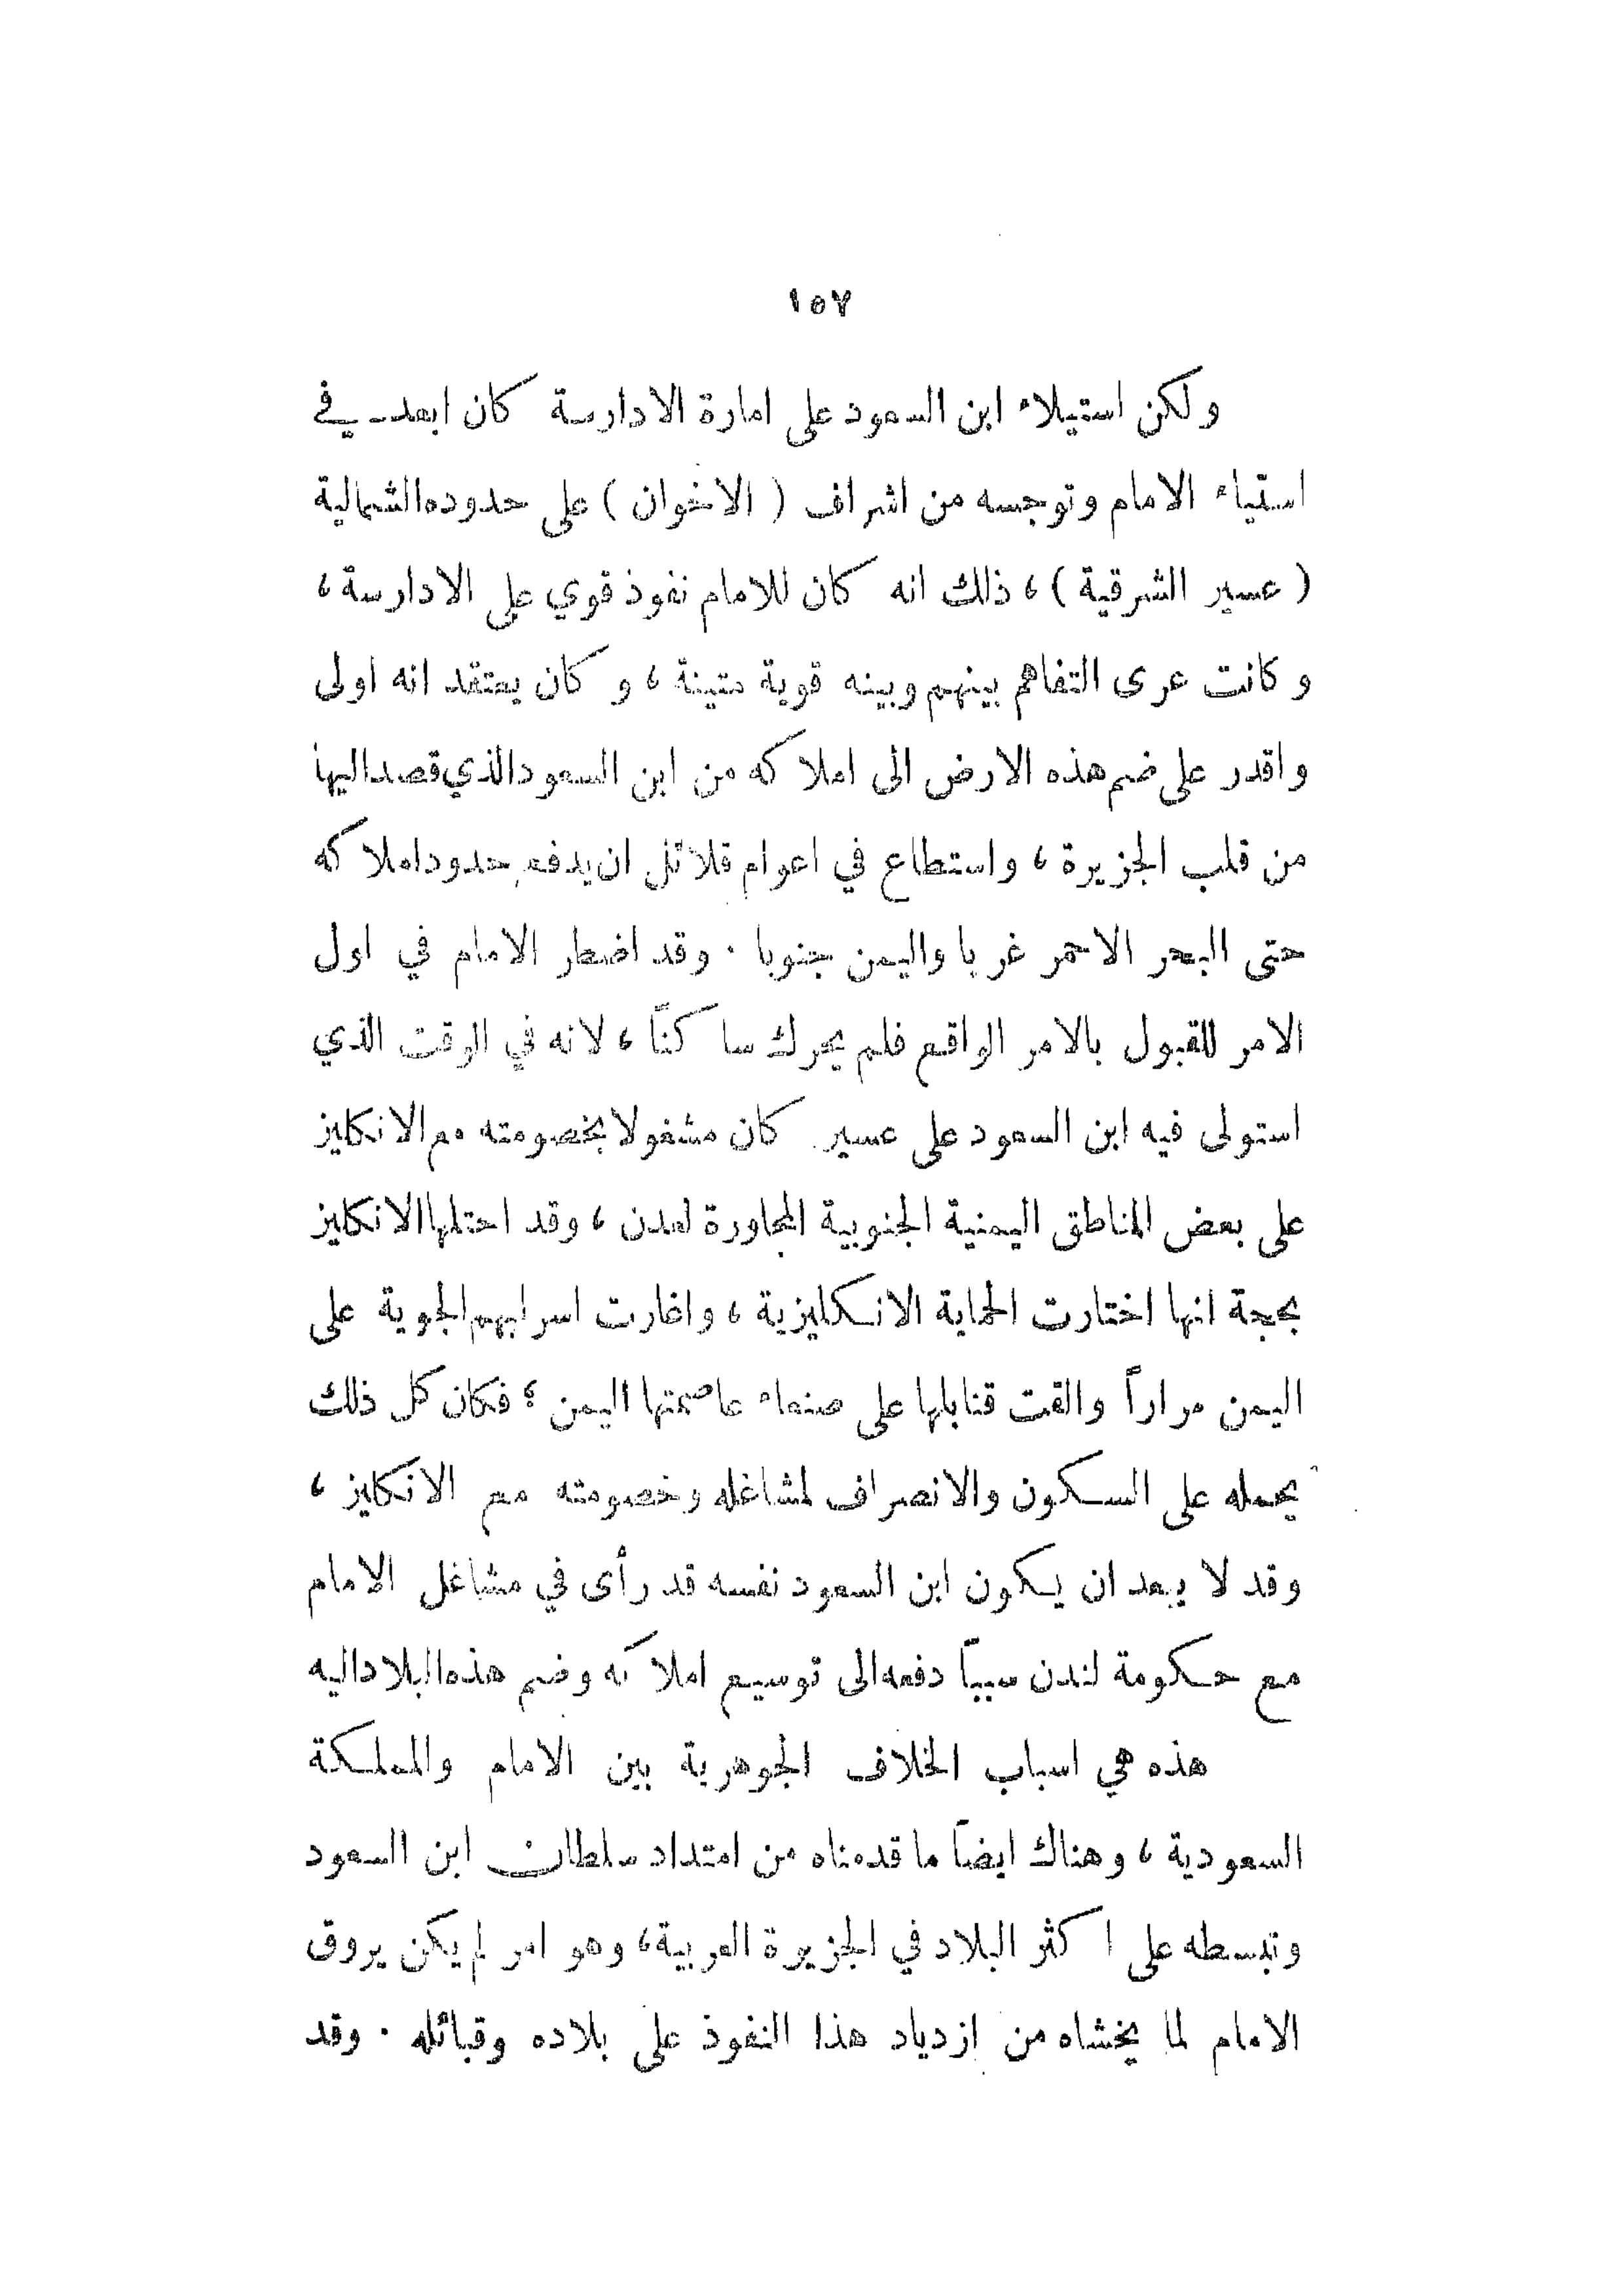 ١٥٧
ولكن استيلاء ابن السعود على امارة الادارسة كان ابعد في
استياء الامام وتوجسه من اشراف ( الاخوان ) على حدوده الشمالية
( عسير الشرقية ) ، ذلك انه كان للامام نفوذ قوي على الادارسة ،
وكانت عرى التفاهم بينهم وبينه قوية متينة ، وكان يعتقد انه اولى
واقدر على ضم هذه الارض الى املاكه من ابن السعود الذي قصد اليها
من قلب الجزيرة ، واستطاع في اعوام قلائل ان يدفع حدود املاكه
حتى البحر الاحمر غربا واليمن جنوبا . وقد اضطر الامام في اول
الامر للقبول بالامر الواقع فلم يحرك ساكناً ، لانه في الوقت الذي
استولى فيه ابن السعود على عسير كان مشغولا بخصومته مع الانكليز
على بعض المناطق اليمنية الجنوبية المجاورة لعدن ، وقد احتلها الانكليز
بحجة انها اختارت الحماية الانكليزية ، واغارت اسرابهم الجوية على
اليمن مراراً والقت قنابلها على صنعاء عاصمتها اليمن ؛ فكان كل ذلك
يحمله على السكون والانصراف لمشاغله وخصومته مع الانكليز ،
وقد لا يبعد ان يكون ابن السعود نفسه قد رأى في مشاغل الامام
مع حكومة لندن سبباً دفعه الى توسيع املاكه وضم هذه البلاد اليه
هذه هي اسباب الخلاف الجوهرية بين الامام والمملكة
السعودية ، وهناك ايضاً ما قدمناه من امتداد سلطان ابن السعود
وتبسطه على اكثر البلاد في الجزيرة العربية ، وهو امر لم يكن يروق
الامام لما يخشاه من ازدياد هذا النفوذ على بلاده وقبائله . وقد